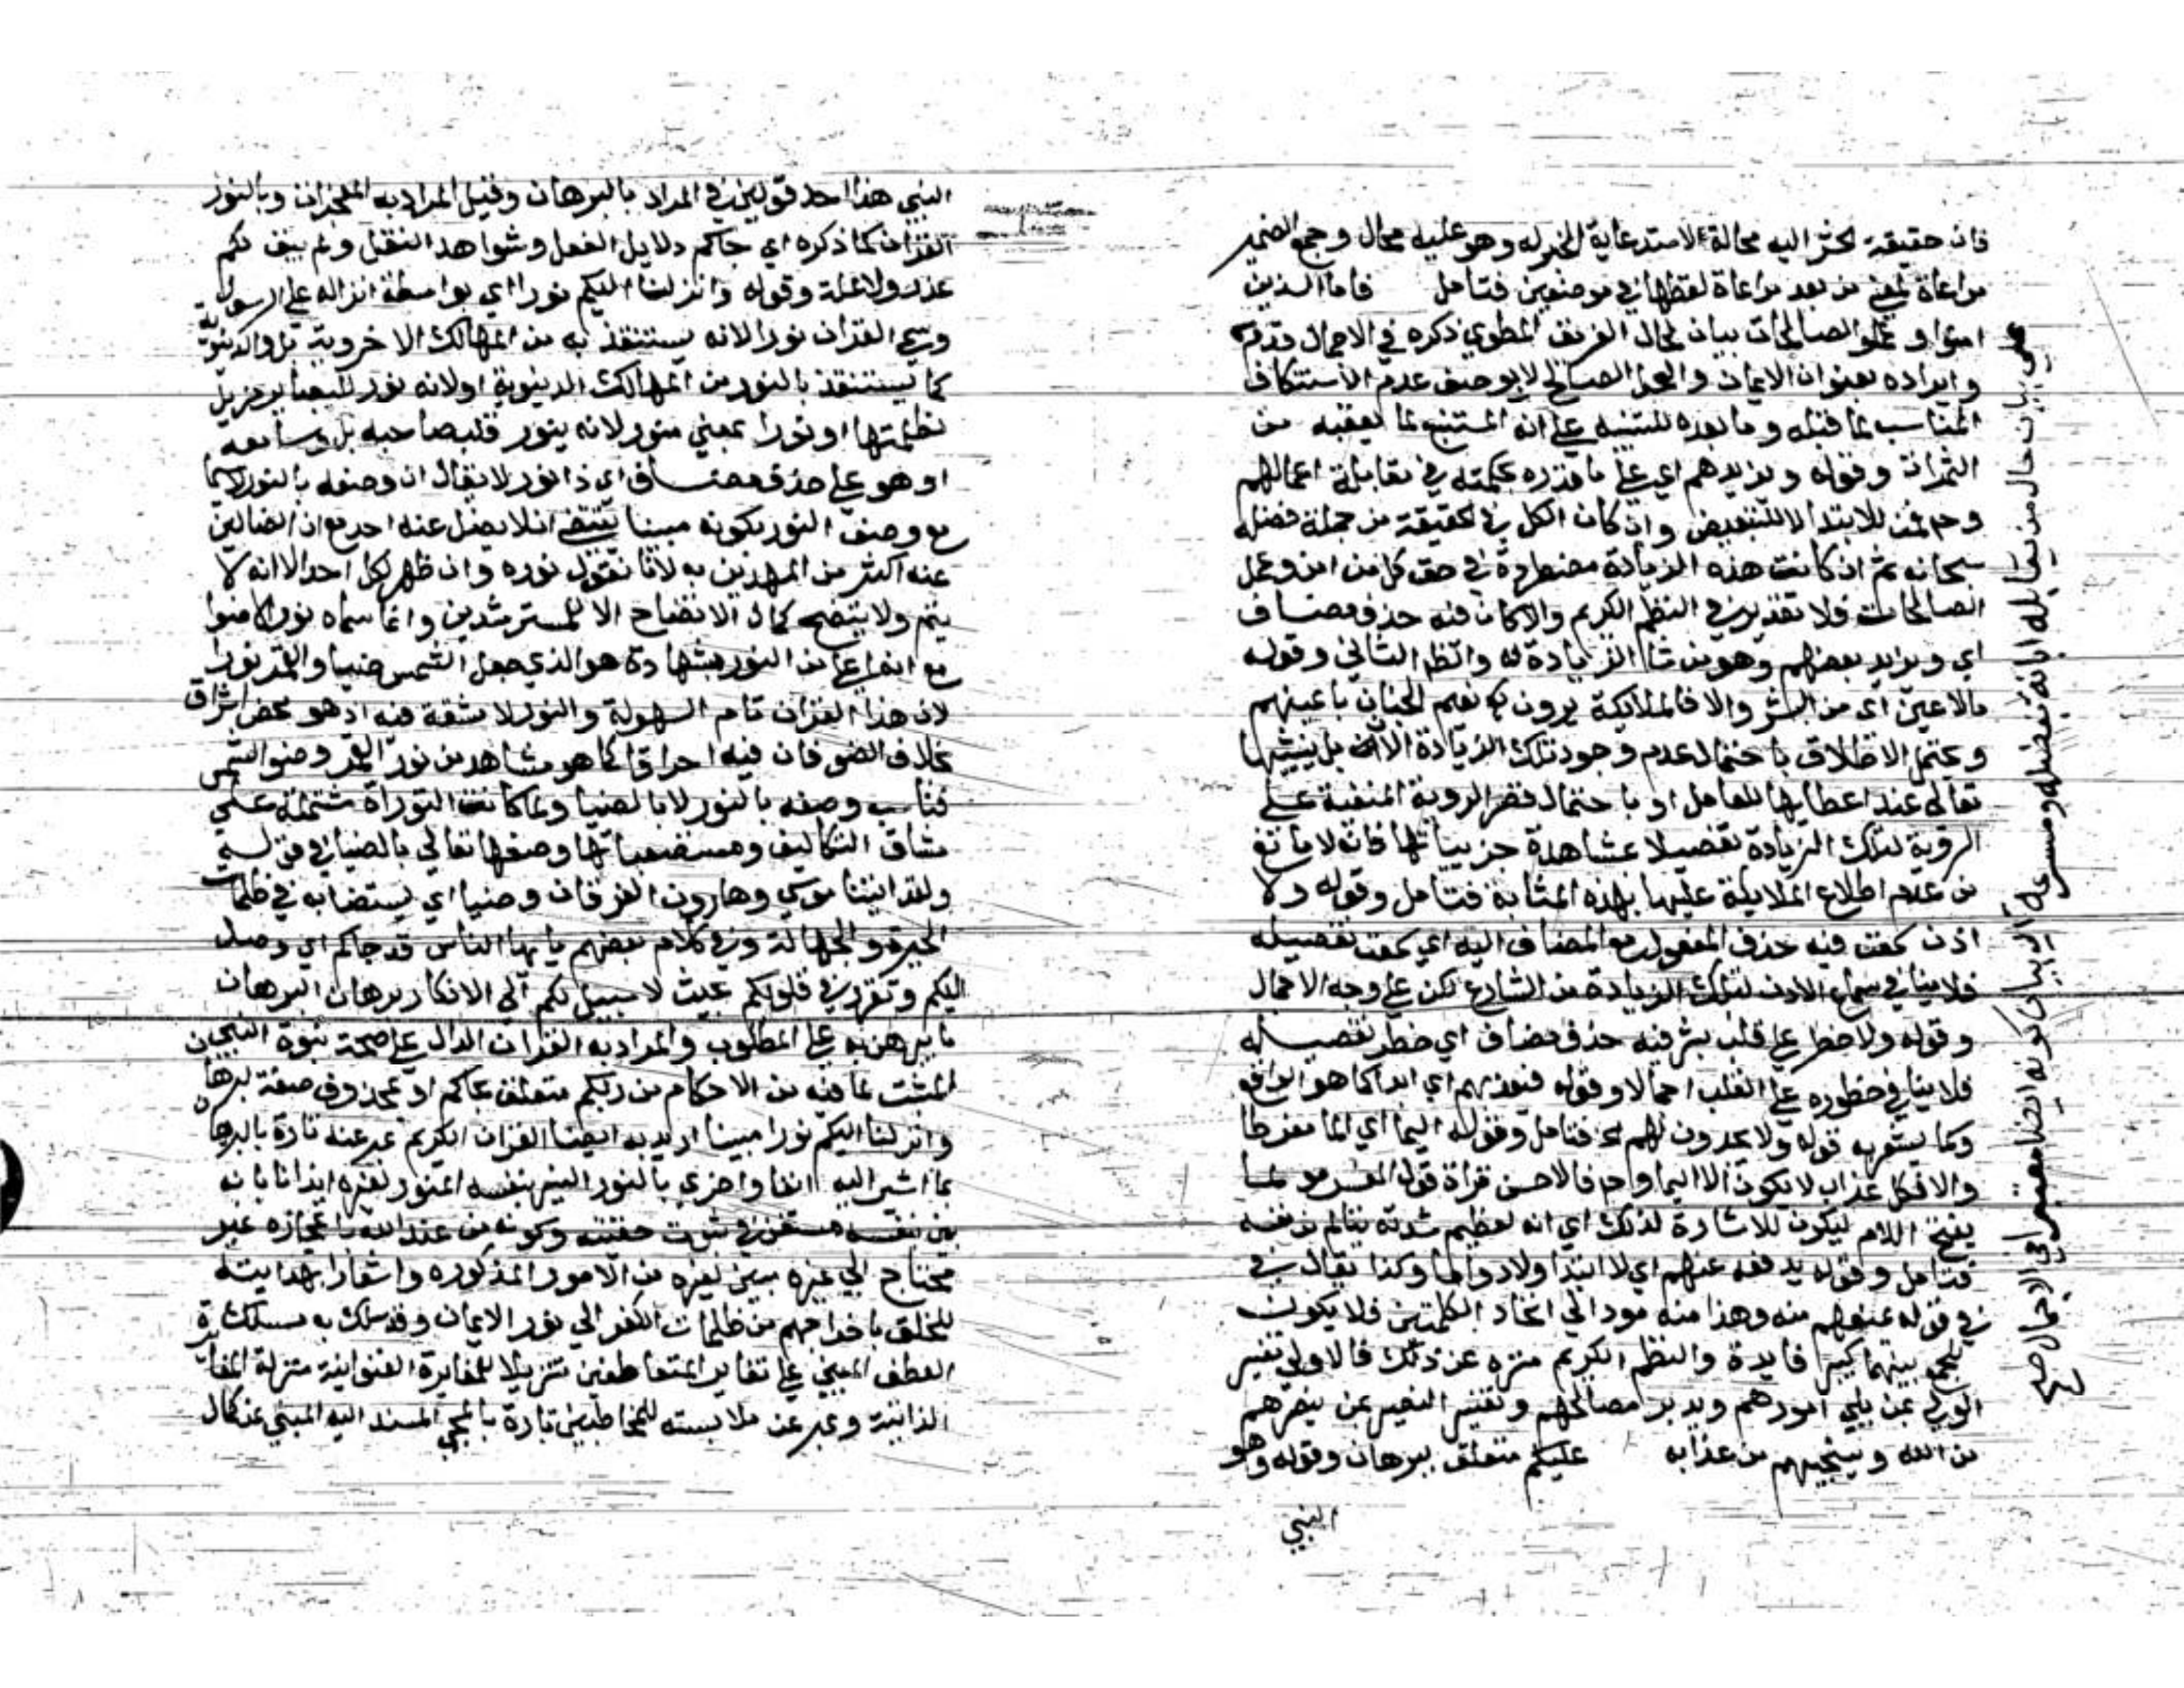 فان حقيقة الحشر اليه محالة لاستدعاية الحيز له وهو عليه محال وجمع الضمير
مراعاة لمعنى من بعد مراعاة لفظها في موضعين فتامل فاما الذين
امنوا وعملوا الصالحات بيان لحال الفريق المطوي ذكره في الاجمال قدم
وايراده بعنوان الايمان والعمل الصالح لا بوصف عدم الاستنكاف
المناسب لما قبله وما بعده للتنبيه على انه المستتبع لما يعقبه من
الثمرات وقوله ويزيدهم اي على ما قدره بحكمته في مقابلة اعمالهم
وحرف من للابتدا لا للتبعيض وان كان الكل في الحقيقة من جملة فضله
سبحانه ثم ان كانت هذه الزيادة مضطردة في حق كل من امن وعمل
الصالحات فلا تقدير في النظم الكريم والا كان فيه حذف مضاف
اي ويزيد بعضهم وهو من شا الزيادة له وانظر الثاني وقوله
مالا عين اي من البشر والا فالملايكة يرون نعيم الجنان باعينهم
ويحتمل الاطلاق باحتمال عدم وجود تلك الزيادة الآن بل ينشئها
تعالى عند اعطايها للعامل او باحتمال قصر الروية المنفية على
الروية لتلك الزيادة تفصيلا بمشاهدة جزيياتها فانه لا مانع
من عدم اطلاع الملايكة عليها بهذه المثابة فتامل وقوله ولا
اذن سمعت فيه حذف المفعول مع المضاف اليه اي سمعت تفصيله
فلا ينافي سماع الاذن لتلك الزيادة من الشارع لكن على وجه الاجمال
وقوله ولا خطر على قلب بشر فيه حذف مضاف اي خطر تفصيله
فلا ينافي خطوره على القلب اجمالا وقوله فيعذبهم اي ابدا كما هو الواقع
وكما يشعر به قوله ولا يجدون لهم فتامل وقوله اليما اي الما مفرطا
والا فكل عذاب لا يكون الا اليما فالاحسن قراة قول المفسر مولما
بفتح اللام ليكون للاشارة لذلك اي انه لعظيم شدته يتالم من نفسه
فتامل وقوله يدفعه عنهم اي لا ابتدا ولا دواما وكذا يقال في
في قوله يمنعهم منه وهذا منه مودا الى اتحاد الكلمتين فلا يكون
للجمع بينهما كبير فايدة والنظم الكريم منزه عن ذلك فالاولى تفسير
الولي بمن يلي امورهم ويدبر مصالحهم وتفسير النصير بمن ينصرهم
من الله وينجيهم من عذابه عليكم متعلق ببرهان وقوله وهو
النبي
النبي هذا احد قولين في المراد بالبرهان وقيل المراد به المعجزات وبالنور
القران كما ذكره اي جاكم دلايل العقل وشواهد النقل ولم يبق لكم
عذر ولا علة وقوله وانزلنا اليكم نورا اي بواسطة انزاله على الرسول
وسمي القران نورا لانه يستنقذ به من المهالك الاخروية بل والدنيوية
كما يستنقذ بالنور من المهالك الدنيوية او لانه نور
بظلمتها او نورا بمعنى منور لانه ينور قلب صاحبه بل وسامعه
او هو على حذف مضاف اي ذا نور لا يقال ان وصفه بالنور لا سيما
مع وصف النور بكونه مبينا يقتضي ان لا يضل عنه احد مع ان الضالين
عنه اكثر من المهتدين به لانا نقول نوره وان ظهر لكل احد الا انه لا
يتم ولا يتضح كمال الاتضاح الا للمسترشدين وانما سماه نورا
مع من النور بشهادة هو الذي جعل الشمس ضيا والقمر نورا
لان هذا القران تام السهولة والنور لا مشقة فيه اذ هو محض اشراق
بخلاف الضو فان فيه احراقا كما هو مشاهد من نور القمر وضو الشمس
فناسب وصفه بالنور لا بالضيا ولما كانت التوراة مشتملة على
مشاق التكاليف ومستصعباتها وصفها تعالى بالضيا في قوله
ولقد اتينا موسى وهارون الفرقان وضيا اي يستضا به في ظلمات
الحيرة والجهالة وفي كلام بعضهم يا ايها الناس قد جاكم اي وصل
اليكم وتقرر في قلوبكم بحيث لا سبيل لكم الى الانكار برهان البرهان
ما يبرهن به على المطلوب والمراد به القران الدال على صحة نبوة النبي
المثبت لما فيه من الاحكام من ربكم متعلق بجاكم او بمحذوف صفة لبرهان
وانزلنا اليكم نورا مبينا اريد به ايضا القران الكريم عبر عنه تارة بالبرهان
لما اشير اليه انفا واخرى بالنور النير بنفسه المنور لغيره ايذانا بانه
بين بنفسه مستغن في ثبوت حقيته وكونه من عند الله باعجازه غير
محتاج الى غيره مبين لغيره من الامور المذكورة واشعارا بهدايته
للخلق باخراجهم من ظلمات الكفر الى نور الايمان وقد سلك به مسلك
العطف المبني على تغاير المتعاطفين تنزيلا للمغايرة العنوانية منزلة المغايرة
الذاتية وعبر عن ملابسته للمخاطبين تارة بالمجي المسند اليه المبني عن كمال